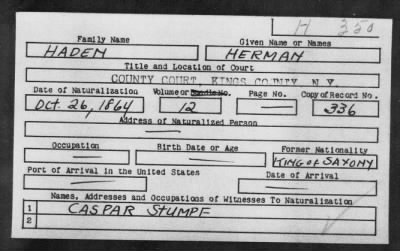 H 350
Family Name Given Name or Names
HADEN HERMAN
Title and Location of Court
COUNTY COURT, KINGS COUNTY N.Y.
Date of Naturalization Volume or Bundle No. Page No. Copy of Record No.
Oct. 26, 1864 12 — 336
Address of Naturalized Person
—
Occupation Birth Date or Age Former Nationality
— — KING OF SAXONY
Port of Arrival in the United States Date of Arrival
— —
Names, Addresses and Occupations of Witnesses To Naturalization
1 CASPAR STUMPF
2